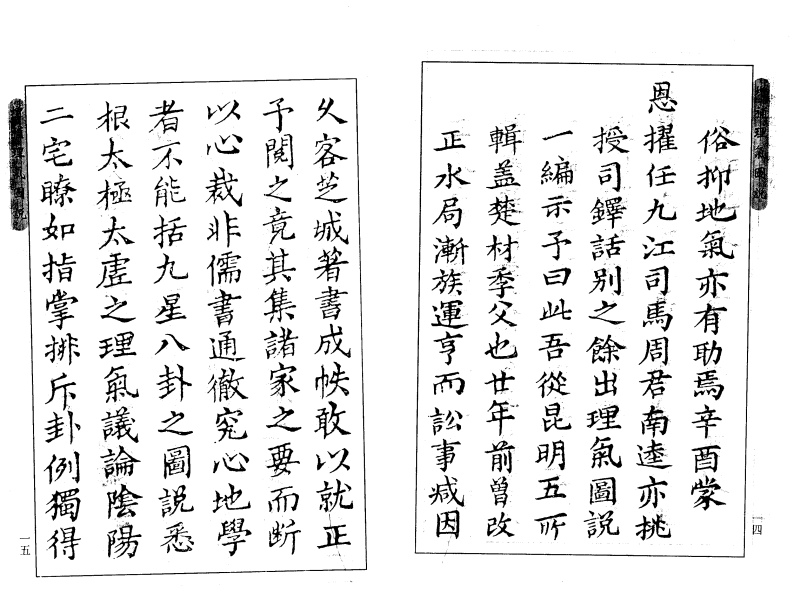 俗抑地氣亦有助焉辛酉蒙
恩擢任九江司馬周君南逵亦挑
授司鐸話別之餘出理氣圖說
一編示予曰此吾從昆明五所
輯蓋楚材季父也廿年前曾改
正水局漸族運亨而訟事減因
一四
久客芝城著書成帙敢以就正
予閱之竟其集諸家之要而斷
以心裁非儒書通徹究心地學
者不能括九星八卦之圖說悉
根太極太虛之理氣議論陰陽
二宅瞭如指掌排斥卦例獨得
一五